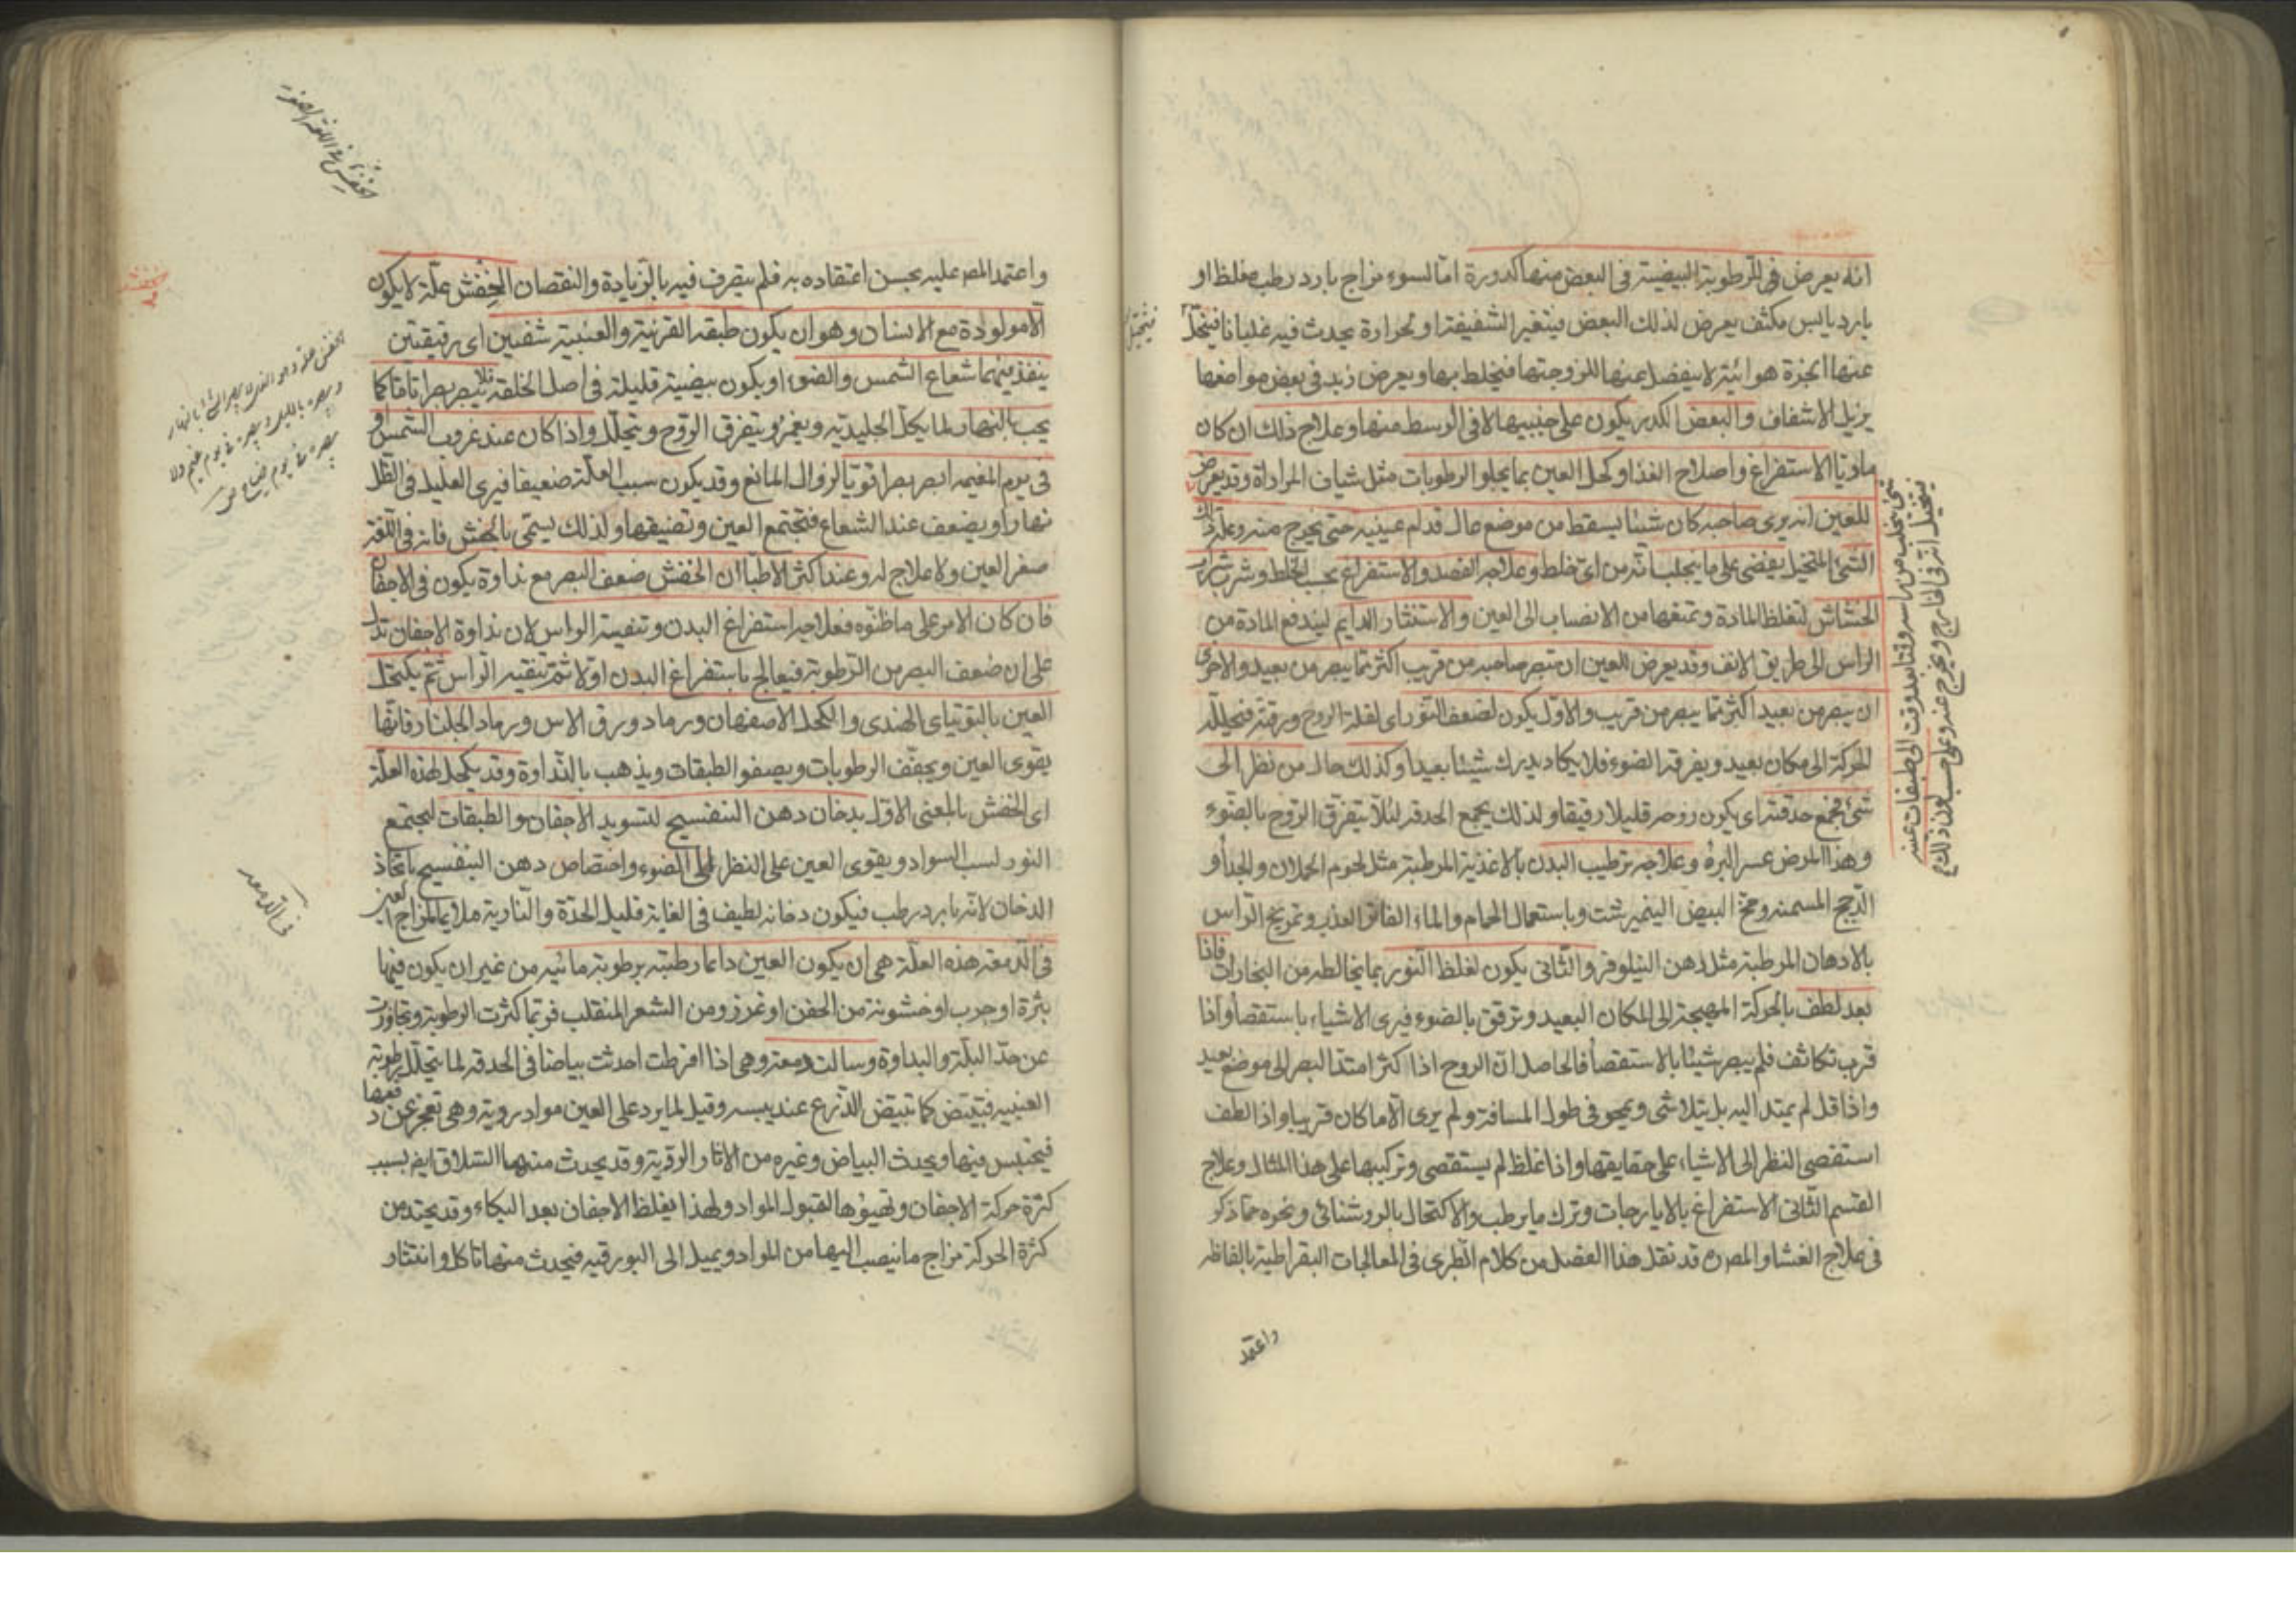 انه يعرض فى الرطوبة البيضية فى البعض منها كدورة اما لسوء مزاج بارد رطب مغلظ او
بارد يابس مكثف يعرض لذلك البعض فيتغير الشفيفة او لحرارة يحدث فيه غليانا فيتحلل
عنها ابخرة هوائية لا ينفصل عنها للزوجتها فيختلط بها ويعرض زبد فى بعض مواضعها
يزيل الاشفاف والبعض الكدر يكون على جنبيها لا فى الوسط منها وعلاج ذلك ان كان
ماديا الاستفراغ واصلاح الغذا وكحل العين بما يجلو الرطوبات مثل شياف المرارات وقد يعرض
للعين انه يرى صاحبه كان شيئا يسقط من موضع عال قدام عينيه حتى يخرج عنه وعلة ذلك
الشئ المتخيل يفضى على ما يجلب انه من اى خلط وعلاجه الفصد والاستفراغ بحسب الخلط وشرب شراب
الخشاش لتغلظ المادة وتمنعها من الانصباب الى العين والاستنثار الدايم ليندفع المادة من
الراس الى طريق الانف وقد يعرض للعين ان تبصر صاحبه من قريب اكثر مما يبصر من بعيد والاخرى
ان يبصر من بعيد اكثر مما يبصر من قريب والاول يكون لضعف النور اى لقلة الروح ورقته فتحلله
الحركة الى مكان بعيد ويفرقه الضوء فلا يكاد يدرك شيئا بعيدا وكذلك حال من نظر الى
شئ فجمع حدقته اى يكون روحه قليلا رقيقا ولذلك يجمع الحدقه لئلا يتفرق الروح بالضوء
وهذا المرض عسر البرء وعلاجه ترطيب البدن بالاغذية المرطبة مثل لحوم الحملان والجدأ و
الدجج المسمنه ومخ البيض النيمبرشت وباستعمال الحمام والماء الفاتر العذب وتمريخ الراس
بالادهان المرطبة مثل دهن النيلوفر والثانى يكون لغلظ النور بما يخالطه من البخارات فاذا
بعد لطف بالحركة المهيجة الى المكان البعيد وترقق بالضوء فيرى الاشياء باستقصأ واذا
قرب تكاثف فلم يبصر شيئا بالاستقصأ فالحاصل ان الروح اذا كثر امتد البصر الى موضع بعيد
واذا قل لم يمتد اليه بل يتلاشى ويمحو فى طول المسافة ولم يرى الا ما كان قريبا واذا لطف
استقصى النظر الى الاشياء على حقايقها واذا غلظ لم يستقصى وتركيبها على هذا المثال وعلاج
القسم الثانى الاستفراغ بالايارجات وترك ما يرطب والاكتحال بالروشنائى ونحوه مما ذكر
فى علاج الغشا والمصره قد نقل هذا الفصل من كلام الطبرى فى المعالجات البقراطية بالفاظه
واعتمد
شئ يجلب من راسه وقتا بعد وقت الى طبقات عينه
فيتخيل انه فى الخارج ويخرج عنه وعلى حسب لون ذلك
فيتخيل
واعتمد المصر عليه بحسن اعتقاده به فلم يتصرف فيه بالزيادة والنقصان الخفش علة لا يكون
الا مولودة مع الانسان وهو ان يكون طبقته القرنية والعنبية شفيفين اى رقيقتين
ينفذ فيهما شعاع الشمس والضوء او يكون بيضيته قليلة فى اصل الخلقة فلا يبصر بصرا تاما كما
يجب بالنهار لما يكل الجليدية ويغمز ويتفرق الروح ويتحلل واذا كان عند غروب الشمس او
فى يوم المغيم ابصر بصرا قويا لزوال المانع وقد يكون سبب العلة ضعيفا فيرى العليل فى الظل
نهارا ويضعف عند الشعاع فتجتمع العين وتضيقها ولذلك يسمى بالخفش فانه فى اللغة
صغر العين ولا علاج له وعند اكثر الاطبا ان الخفش ضعف البصر مع نداوة يكون فى الاجفان
فان كان الامر على ما ظنوه فعلاجه استفراغ البدن وتنقية الراس لان نداوة الاجفان تدل
على ان ضعف البصر من الرطوبة فيعالج باستفراغ البدن اولا ثم تنقيه الراس ثم يكتحل
العين بالتوتياى الهندى والكحل الاصفهان ورماد ورق الاس ورماد الجلنار فانها
يقوى العين ويجفف الرطوبات ويصفو الطبقات ويذهب بالنداوة وقد يكحل لهذه العلة
اى الخفش بالمعنى الاول بدخان دهن البنفسج لتسويد الاجفان والطبقات ليجتمع
النور لسبب السواد ويقوى العين على النظر الى الضوء واختصاص دهن البنفسج باتخاذ
الدخان لانه بارد رطب فيكون دخانه لطيف فى الغاية قليل الحدة والنارية ملايما لمزاج العين
فى الدمعة هذه العلة هى ان يكون العين دائما رطبة برطوبة مائيه من غير ان يكون فيها
بثرة او جرب او خشونة من الجفن او غرز ومن الشعر المنقلب فربما كثرت الرطوبة وتجاوزت
عن حد البلة والنداوة وسالت دمعة وهى اذا افرطت احدثت بياضا فى الحدقه لما يتحلل رطوبة
العنبيه فتبيض كما تبيض الذرع عند يبسه وقيل لما يرد على العين مواد رديه وهى تعجز عن دفعها
فيحتبس فيها ويحدث البياض وغيره من الاثار الردية وقد يحدث منها السلاق ايضا بسبب
كثرة حركة الاجفان وتهيؤها لقبول المواد ولهذا يغلظ الاجفان بعد البكاء وقد يحتد من
كثرة الحركة مزاج ما ينصب اليها من المواد ويميل الى البورقيه فيحدث منها تاكل وانتثار
فى الدمعه